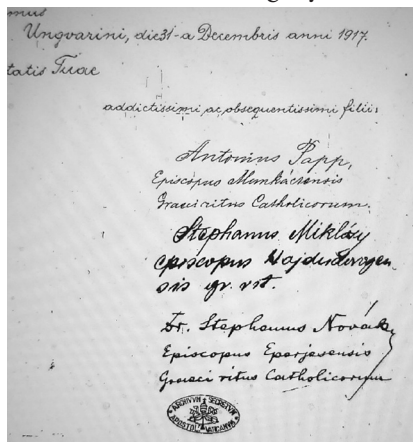 Ungvarini, die 31-a Decembris anni 1917.
tatis Tuae
addictissimi ac obsequentissimi filii:
Antonius Papp,
Episcopus Munkácsensis
Graeci ritus Catholicorum.
Stephanus Miklósy
episcopus Hajdudorogen-
sis gr. rit.
Dr. Stephanus Novák
Episcopus Eperjesensis
Graeci ritus Catholicorum
ARCHIVVM SECRETVM
APOSTOL. VATICANVM